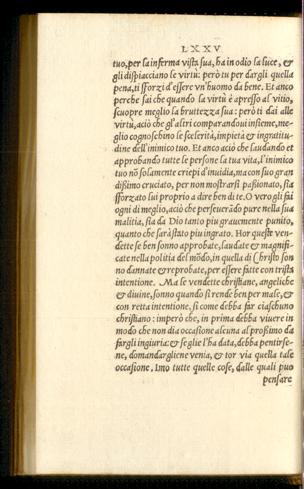 LXXV
tuo, per la inferma vista sua, ha in odio la luce, &
gli dispiacciano le virtù: però tu per dargli quella
pena, ti sforzi d'essere un'huomo da bene. Et anco
perche sai che quando la virtù è apresso al vitio,
scuopre meglio la bruttezza sua: però ti dai alle
virtù, aciò che gl'altri comparandoui insieme, me-
glio cognoschino le scelerità, impietà & ingratitu-
dine dell'inimico tuo. Et anco aciò che laudando et
approbando tutte le persone la tua vita, l'inimico
tuo nõ solamente criepi d'inuidia, ma con suo gran
dißimo cruciato, per non mostrarsi paßionato, sia
sforzato lui proprio a dire ben di te. O vero gli fai
ogni di meglio, aciò che perseuerādo pure nella sua
malitia, sia da Dio tanto piu grauemente punito,
quanto che sarà stato piu ingrato. Hor queste ven-
dette se ben sonno approbate, laudate & magnifi-
cate nella politia del mõdo, in quella di Christo son
no dannate & reprobate, per essere fatte con trista
intentione. Ma le vendette christiane, angeliche
& diuine, sonno quando si rende ben per male, &
con retta intentione, si come debba far ciaschuno
christiano: imperò che, in prima debba viuere in
modo che non dia occasione alcuna al proßimo da
fargli ingiuria: & se glie l'ha data, debba pentirse-
ne, domandargliene venia, & tor via quella tale
occasione. Imo tutte quelle cose, dalle quali può
pensare